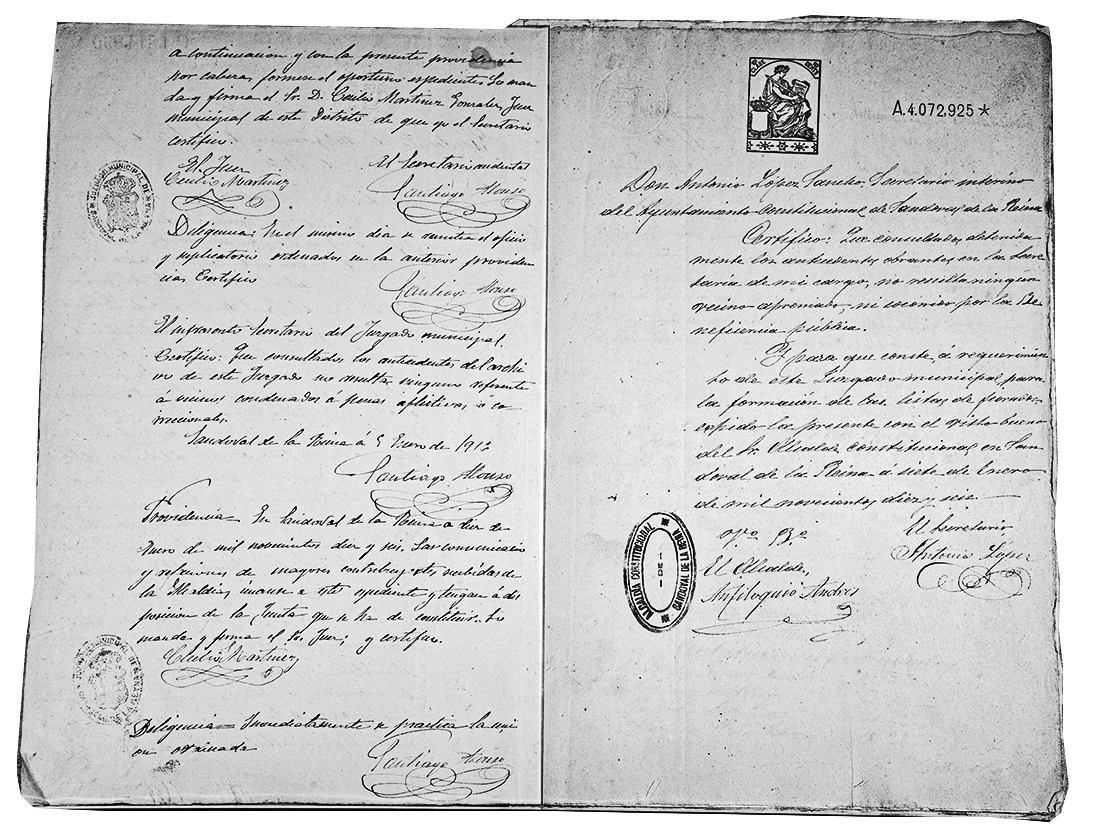 a continuacion y con la presente providencia
por cabeza, formese el oportuno expediente. Lo man
da y firma el Sr. D. Cecilio Martinez Gonzalez, Juez
municipal de este Distrito de que yo el Secretario
certifico.
El Juez
Cecilio Martinez
El Secretario accidental
Santiago Alonso
JUZGADO MUNICIPAL DE
Diligencia: En el mismo dia se remiten el oficio
y suplicatorio ordenados en la anterior providen
cia. Certifico
Santiago Alonso
El infrascrito Secretario del Juzgado municipal.
Certifico: Que consultados los antecedentes del archi
vo de este Juzgado no resulta ninguno referente
á vecinos condenados á penas aflictivas, ó co
rreccionales.
Sandoval de la Reina á 5 Enero de 1916
Santiago Alonso
Providencia = En Sandoval de la Reina a diez de
Enero de mil novecientos diez y seis. Las comunicacio
y relaciones de mayores contribuyentes recibidas de
la Alcaldia, unanse a este expediente y tengan a dis
posicion de la Junta que se ha de constituir. Lo
manda y firma el Sr. Juez; y certifico.
Cecilio Martinez
Diligencia = Inmediatamente se practica la uni
on ordenada
Santiago Alonso
A.4.072.925 *
Don Antonio López Sancho, Secretario interino
del Ayuntamiento Constitucional de Sandoval de la Reina
Certifico: Que consultados detenida
mente los antecedentes obrantes en la Secre
taría de mi cargo, no resulta ningún
vecino apremiado, ni socorrido por la Be
neficencia pública.
Y para que conste, á requerimien
to de este Juzgado municipal, para
la formación de las listas de jurados,
expido la presente con el visto bueno
del Sr. Alcalde constitucional en San
doval de la Reina a siete de Enero
de mil novecientos diez y seis.
Vº. Bº.
El Alcalde,
Anfiloquio Andres
El Secretario,
Antonio López
ALCALDIA CONSTITUCIONAL
DE
SANDOVAL DE LA REINA